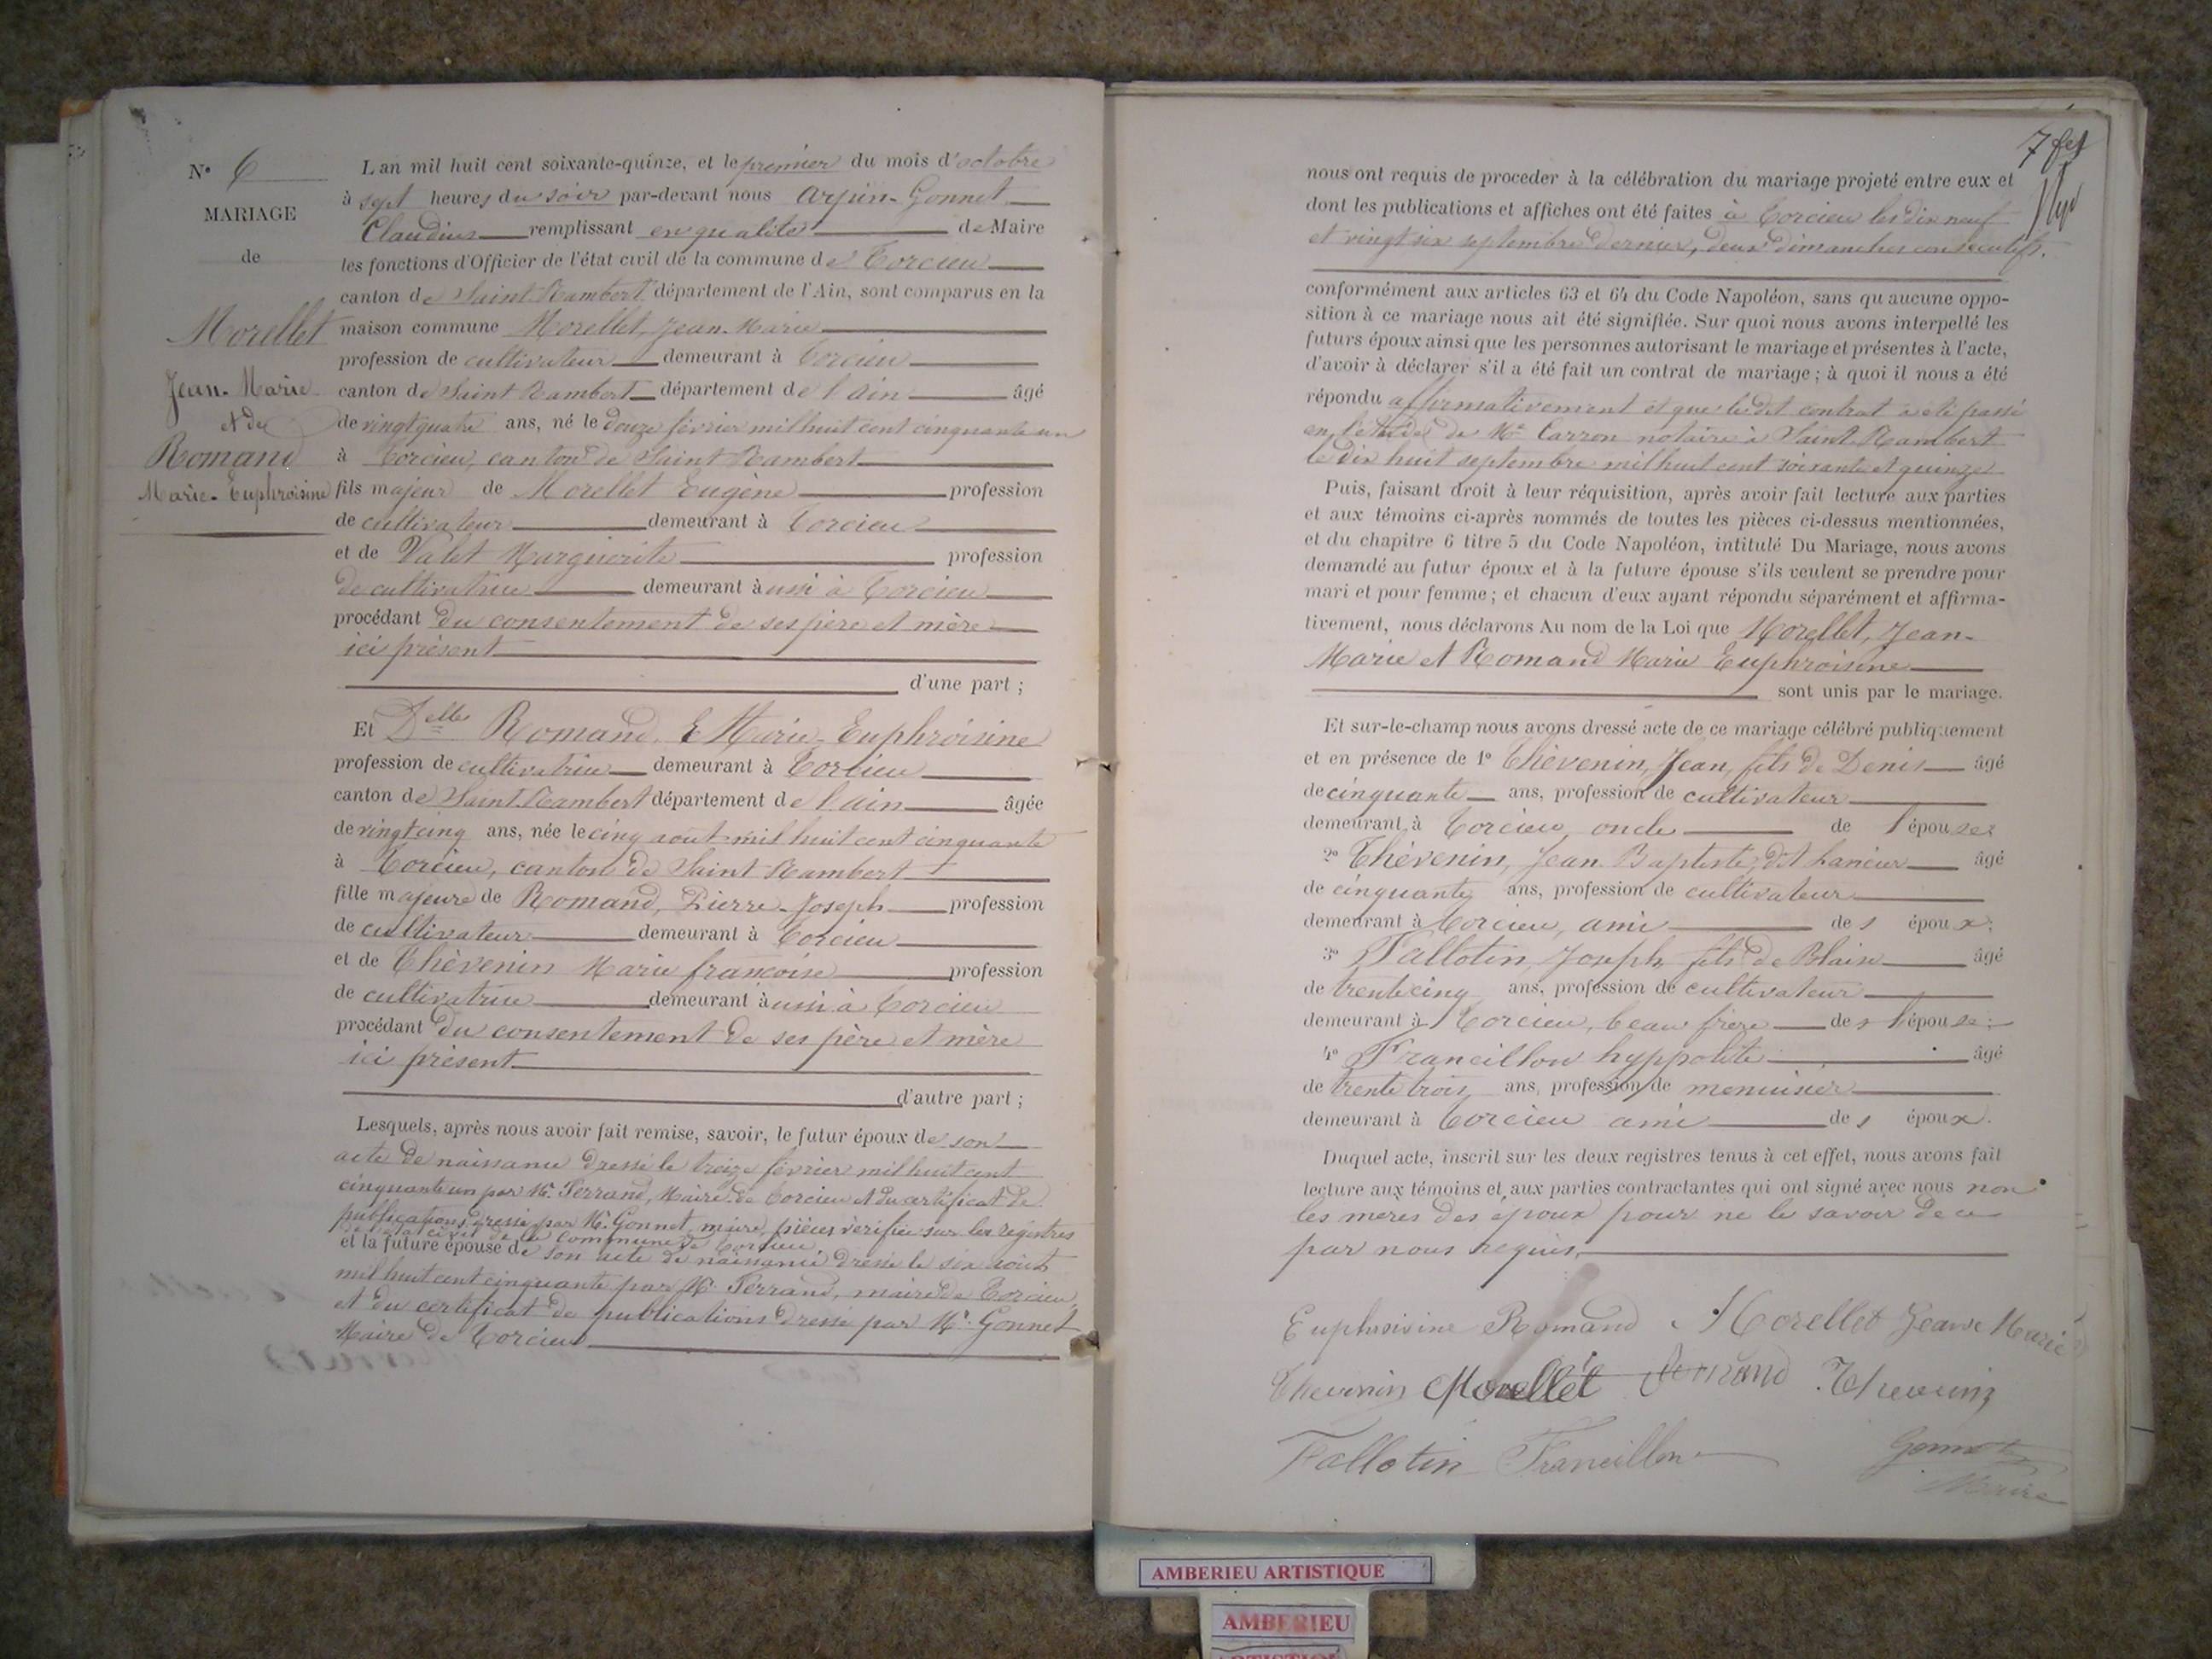 N° 6
MARIAGE
de
Morellet
Jean-Marie
et de
Romand
Marie-Euphroisine
L'an mil huit cent soixante-quinze, et le premier du mois d'octobre
à sept heures du soir par-devant nous Arpin-Gonnet
Claudius remplissant en qualité de Maire
les fonctions d'Officier de l'état civil de la commune de Torcieu
canton de Saint-Rambert département de l'Ain, sont comparus en la
maison commune Morellet, Jean-Marie
profession de cultivateur demeurant à Torcieu
canton de Saint Rambert département de l'Ain âgé
de vingt quatre ans, né le douze février mil huit cent cinquante un
à Torcieu, canton de Saint Rambert
fils majeur de Morellet Eugène profession
de cultivateur demeurant à Torcieu
et de Valet Marguerite profession
de cultivatrice demeurant à ussi à Torcieu
procédant du consentement de ses père et mère
ici présent
d'une part ;
Et Delle Romand, Marie-Euphroisine
profession de cultivatrice demeurant à Torcieu
canton de Saint-Rambert département de l'Ain âgée
de vingt cinq ans, née le cinq août mil huit cent cinquante
à Torcieu, canton de Saint Rambert
fille majeure de Romand, Pierre-Joseph profession
de cultivateur demeurant à Torcieu
et de Thèvenin Marie françoise profession
de cultivatrice demeurant à ussi à Torcieu
procédant du consentement de ses père et mère
ici présent
d'autre part ;
Lesquels, après nous avoir fait remise, savoir, le futur époux de son
acte de naissance dressé le treize février mil huit cent
cinquante un par Mr. Ferrand, Maire de Torcieu et du certificat de
publications dressé par Mr. Gonnet, maire, pièces vérifiée sur les registres
de l'état civil de la commune de Torcieu
et la future épouse de son acte de naissance dressé le six août
mil huit cent cinquante par Mr. Ferrand, maire de Torcieu,
et du certificat de publications dressé par Mr. Gonnet
Maire de Torcieu
7
nous ont requis de proceder à la célébration du mariage projeté entre eux et
dont les publications et affiches ont été faites à Torcieu les dix neuf
et vingt six septembre dernier, deux dimanches consécutifs.
conformément aux articles 63 et 64 du Code Napoléon, sans qu'aucune oppo-
sition à ce mariage nous ait été signifiée. Sur quoi nous avons interpellé les
futurs époux ainsi que les personnes autorisant le mariage et présentes à l'acte,
d'avoir à déclarer s'il a été fait un contrat de mariage ; à quoi il nous a été
répondu affirmativement et que le dit contrat a été passé
en l'étude de Me Carron notaire à Saint Rambert
le dix huit septembre mil huit cent soixante et quinze
Puis, faisant droit à leur réquisition, après avoir fait lecture aux parties
et aux témoins ci-après nommés de toutes les pièces ci-dessus mentionnées,
et du chapitre 6 titre 5 du Code Napoléon, intitulé Du Mariage, nous avons
demandé au futur époux et à la future épouse s'ils veulent se prendre pour
mari et pour femme ; et chacun d'eux ayant répondu séparément et affirma-
tivement, nous déclarons Au nom de la Loi que Morellet, Jean-
Marie et Romand Marie Euphroisine
sont unis par le mariage.
Et sur-le-champ nous avons dressé acte de ce mariage célébré publiquement
et en présence de 1° Thèvenin, Jean, fils de Denis âgé
de cinquante ans, profession de cultivateur
demeurant à Torcieu, oncle de l'épouse
2° Thèvenin, Jean Baptiste, dit âgé
de cinquante ans, profession de cultivateur
demeurant à Torcieu, ami des époux ;
3° Fallotin, Joseph, fils de Blaise âgé
de trente cinq ans, profession de cultivateur
demeurant à Torcieu, beau frère de l'épouse ;
4° Francillon hyppolite âgé
de trente trois ans, profession de menuisier
demeurant à Torcieu ami des époux.
Duquel acte, inscrit sur les deux registres tenus à cet effet, nous avons fait
lecture aux témoins et aux parties contractantes qui ont signé avec nous non
les meres des époux pour ne le savoir de ce
par nous requis,
Euphroisine Romand Morellet Jean Marie
Thevenin Morellet Romand Thevenin
Fallotin Francillon Gonnet
Maire
AMBERIEU ARTISTIQUE
AMBERIEU
ARTISTIQUE